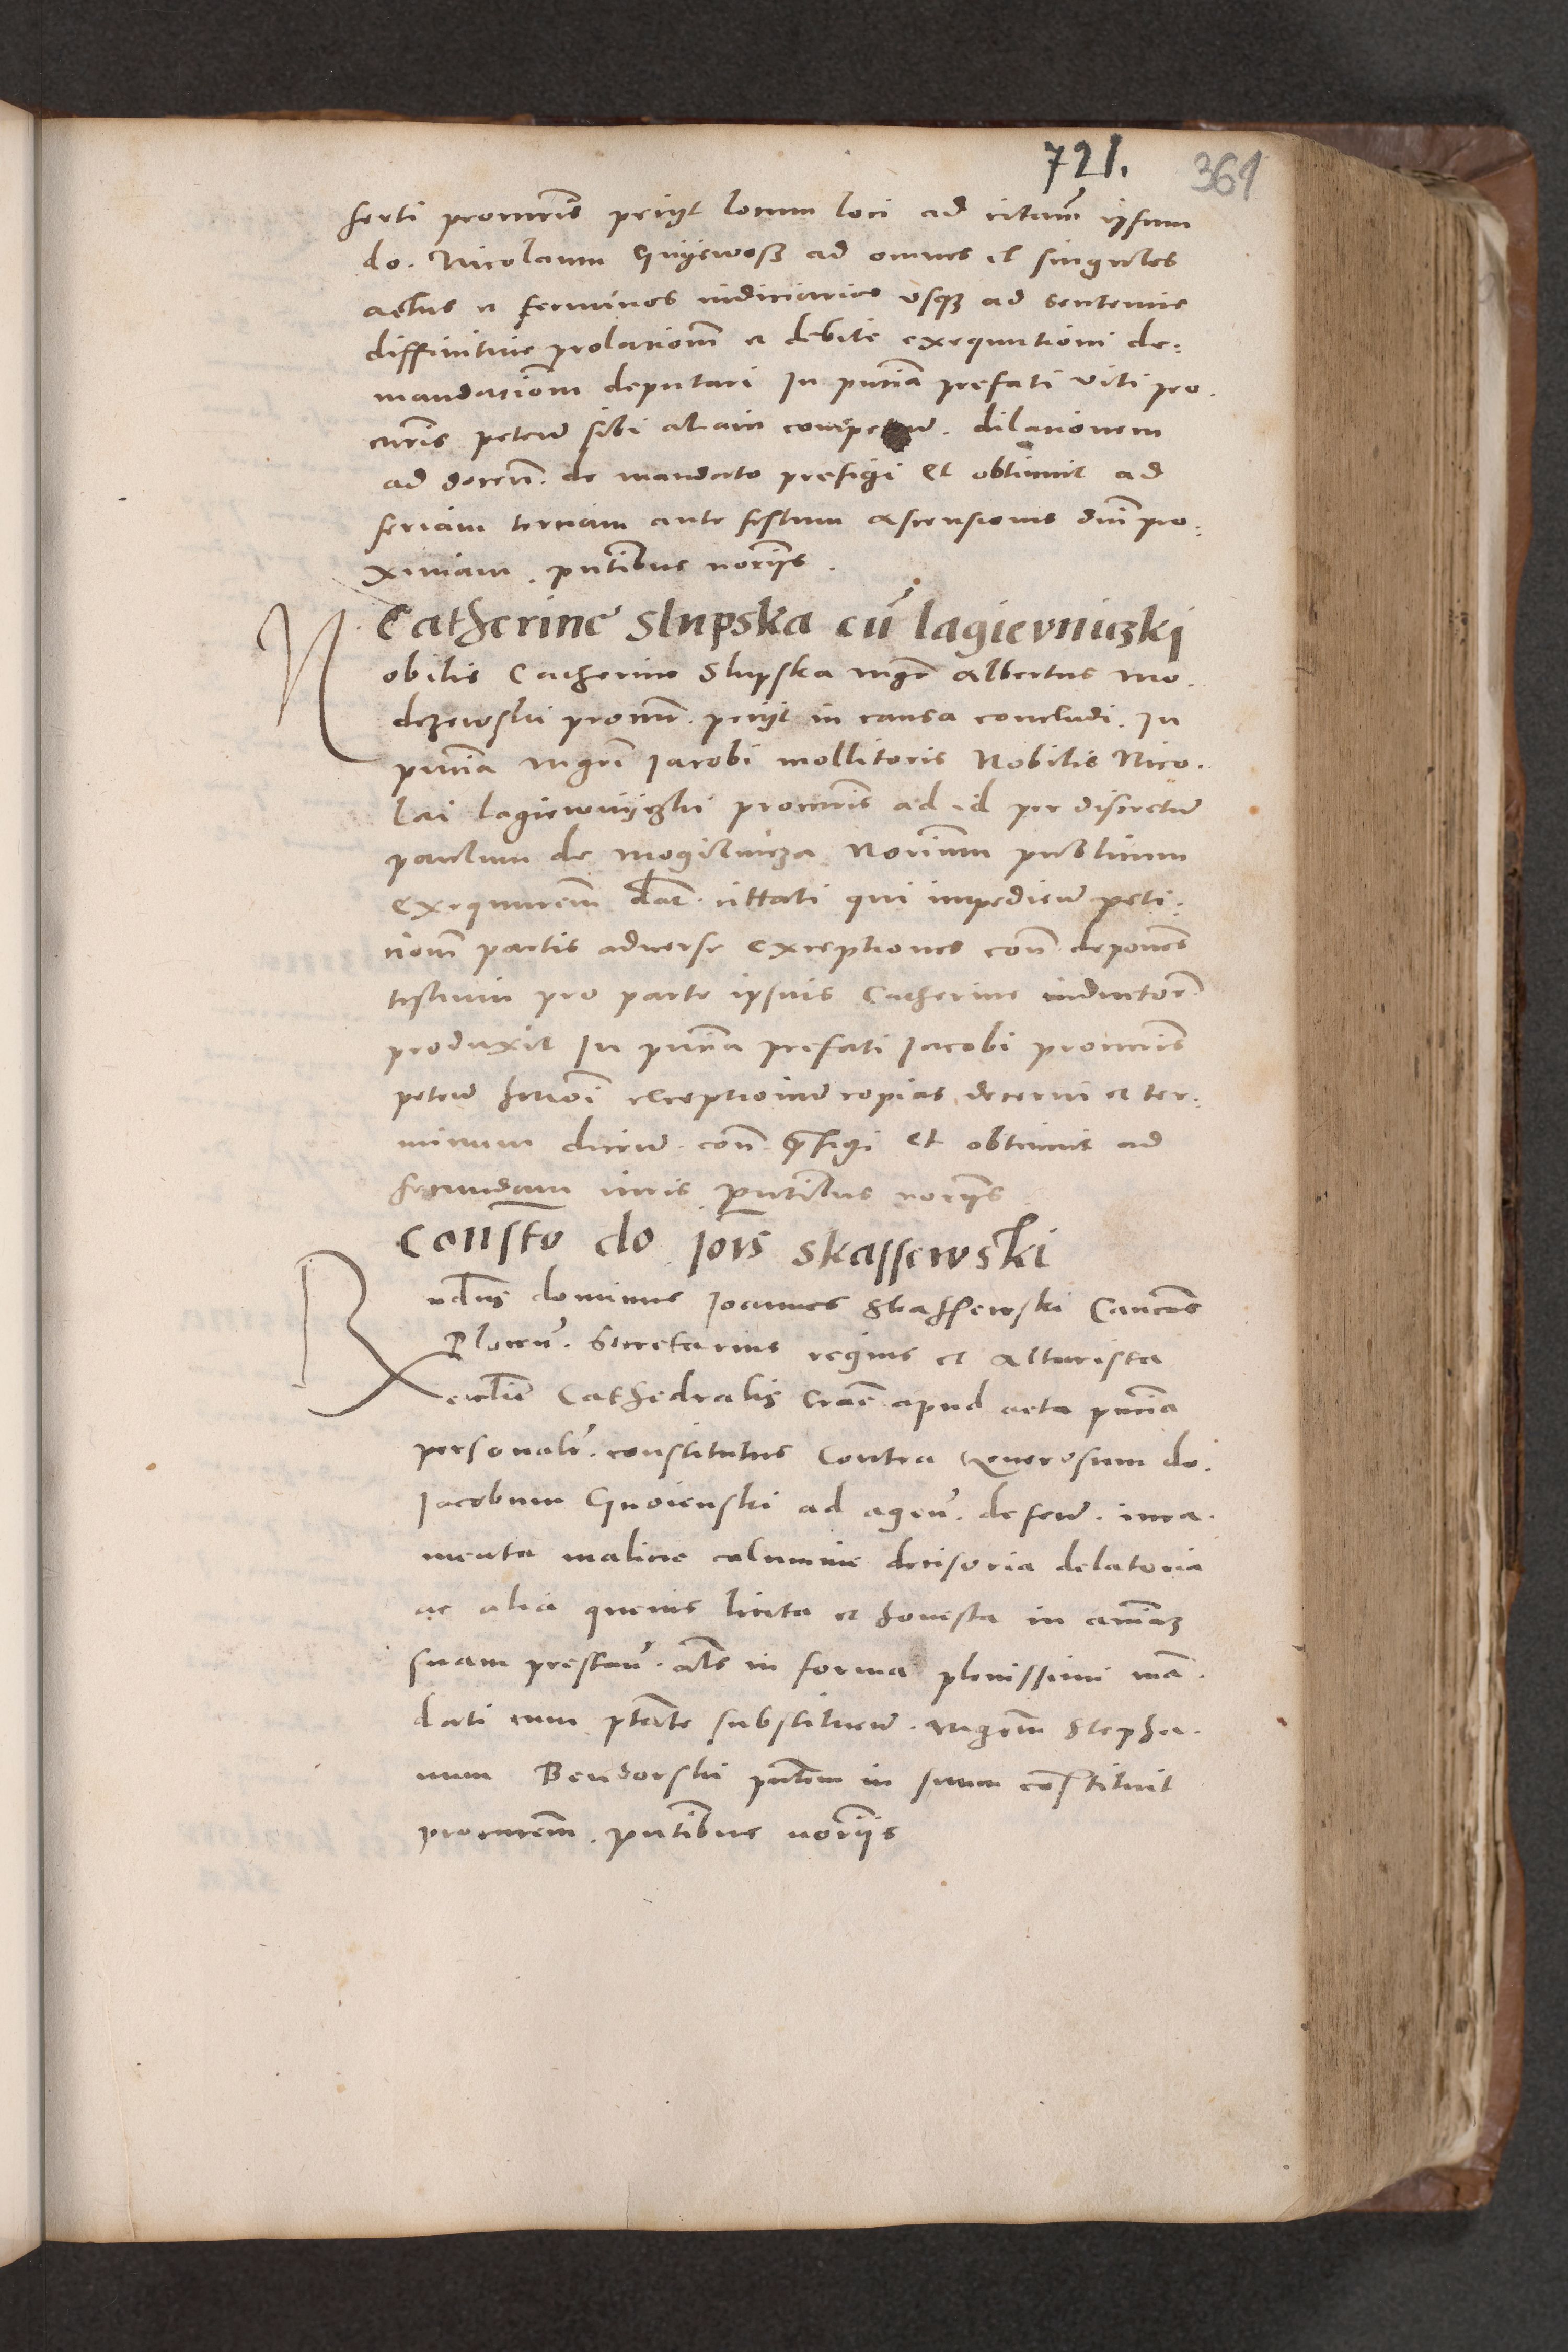 721. 361
serti procuris petiit locum loci ad citaum ipsum
do. Nicolaum Gnyewosz ad omnes et singulos
actus et terminos iudiciarios usqz ad sententie
diffinitive prolacionem et debite exequutioni de:
mandacionem deputari In pntia prefati viti pro.
curis peten sibi aliam competen. dilacionem
ad docen. de mandato prefigi Et obtinuit ad
feriam terciam ante festum ascensionis dni pro:
ximam. pntibus noriis.
Catherine Slupska cu lagievniczki
Nobilis Catherine Slupska mgr Albertus mo.
dezewski procur. petiit in causa concludi. In
pntia mgri Jacobi mollitoris Nobilis Nico.
lai lagiewnyczki procuris ad id per discretum
paulum de mogilnicza Norium publicum
exequutorem dat. cittati qui impedien peti:
cionem partis adverse exceptiones con. depones
testium pro parte ipsius Catherine inductor.
produxit In pntia prefati Jacobi procuris
peten huiusmodi exceptionum copias decerni et ter:
minum dicen. con. prefigi Et obtinuit ad
secundam iuris pntibus noriis
Constto do. Jois Skassewski
Rndus dominus Joannes Skassewski Cancus
Plocen. Secretarius regius et Altarista
ecclie Cathedralis Crac apud acta pntia
personalr. constitutus Contra Generosum do.
Jacobum Gnoienski ad agen. defen. iura.
menta malicie calumnie decisoria delatoria
ac alia quevis licita et honesta in animaz
suam prestan. als in forma plenissimi man.
dati cum ptate substituen. mgrum Stepha.
num Bendorski pntem in suum constituit
procurem. pntibus noriis